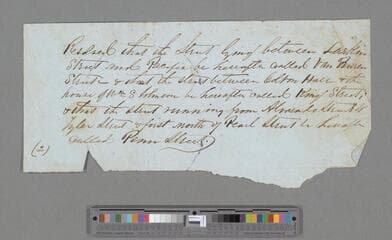 Resolved that the street lying between
Street and Pacific be hereafter called Van Buren
Street & that the street between Colton Hall & the
house of Wm S Johnson be hereafter called King Street;
& that the street running from Alvarado Street to
Tyler Street & first north of Pearl Street be hereafter
called Penn Street.
(2)